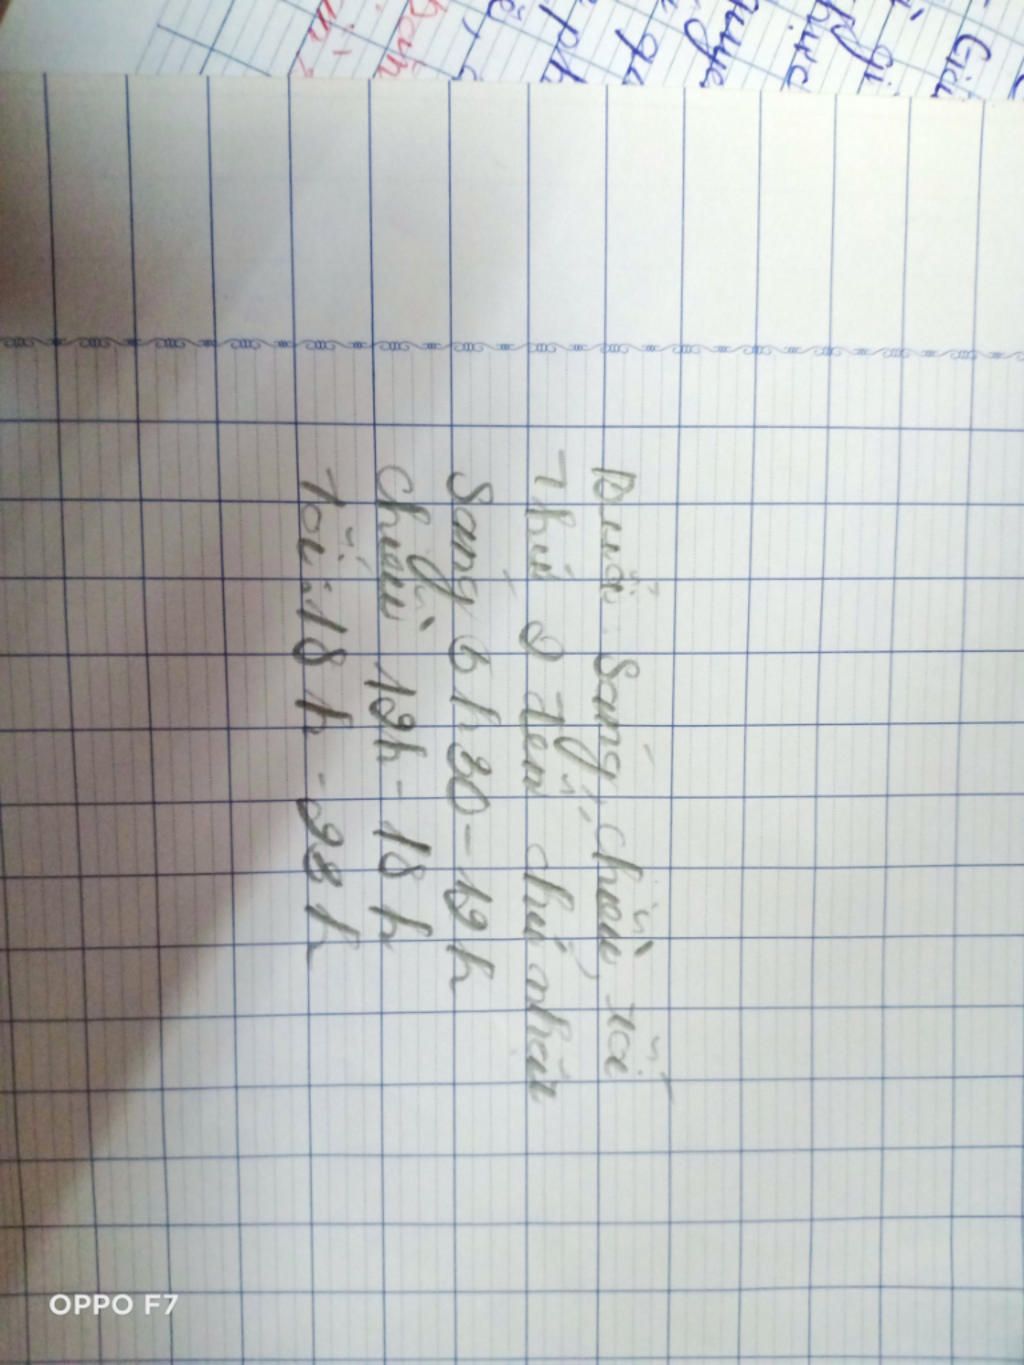 Buổi: Sáng, chiều, tối
Thứ 2 đến chủ nhật
Sáng 6h30-12h
Chiều 12h-18h
Tối: 18h-22h
OPPO F7